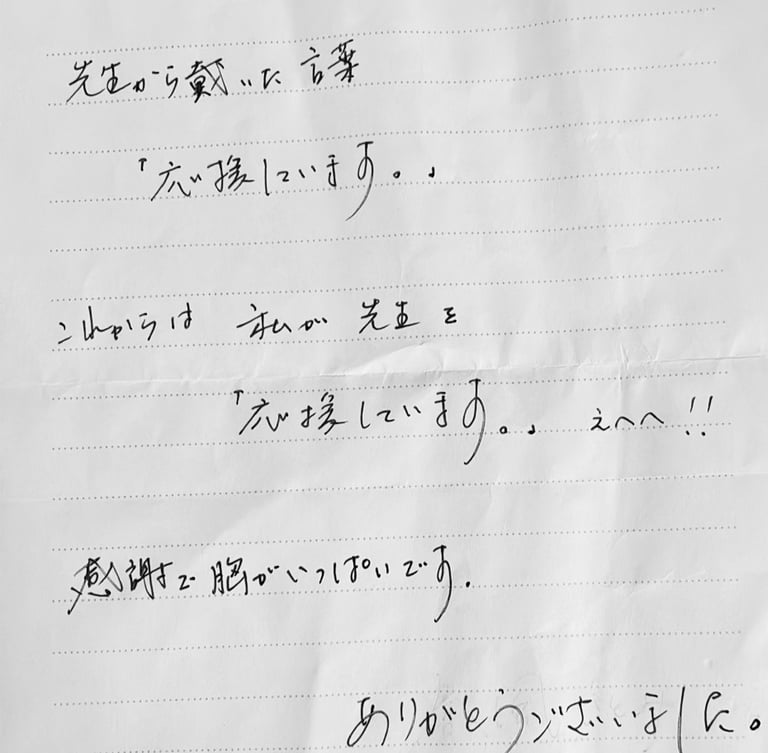 先生から戴いた言葉
「応援しています。」
これからは 私が 先生を
「応援しています。」 えへへ!!
感謝で胸がいっぱいです。
ありがとうございました。